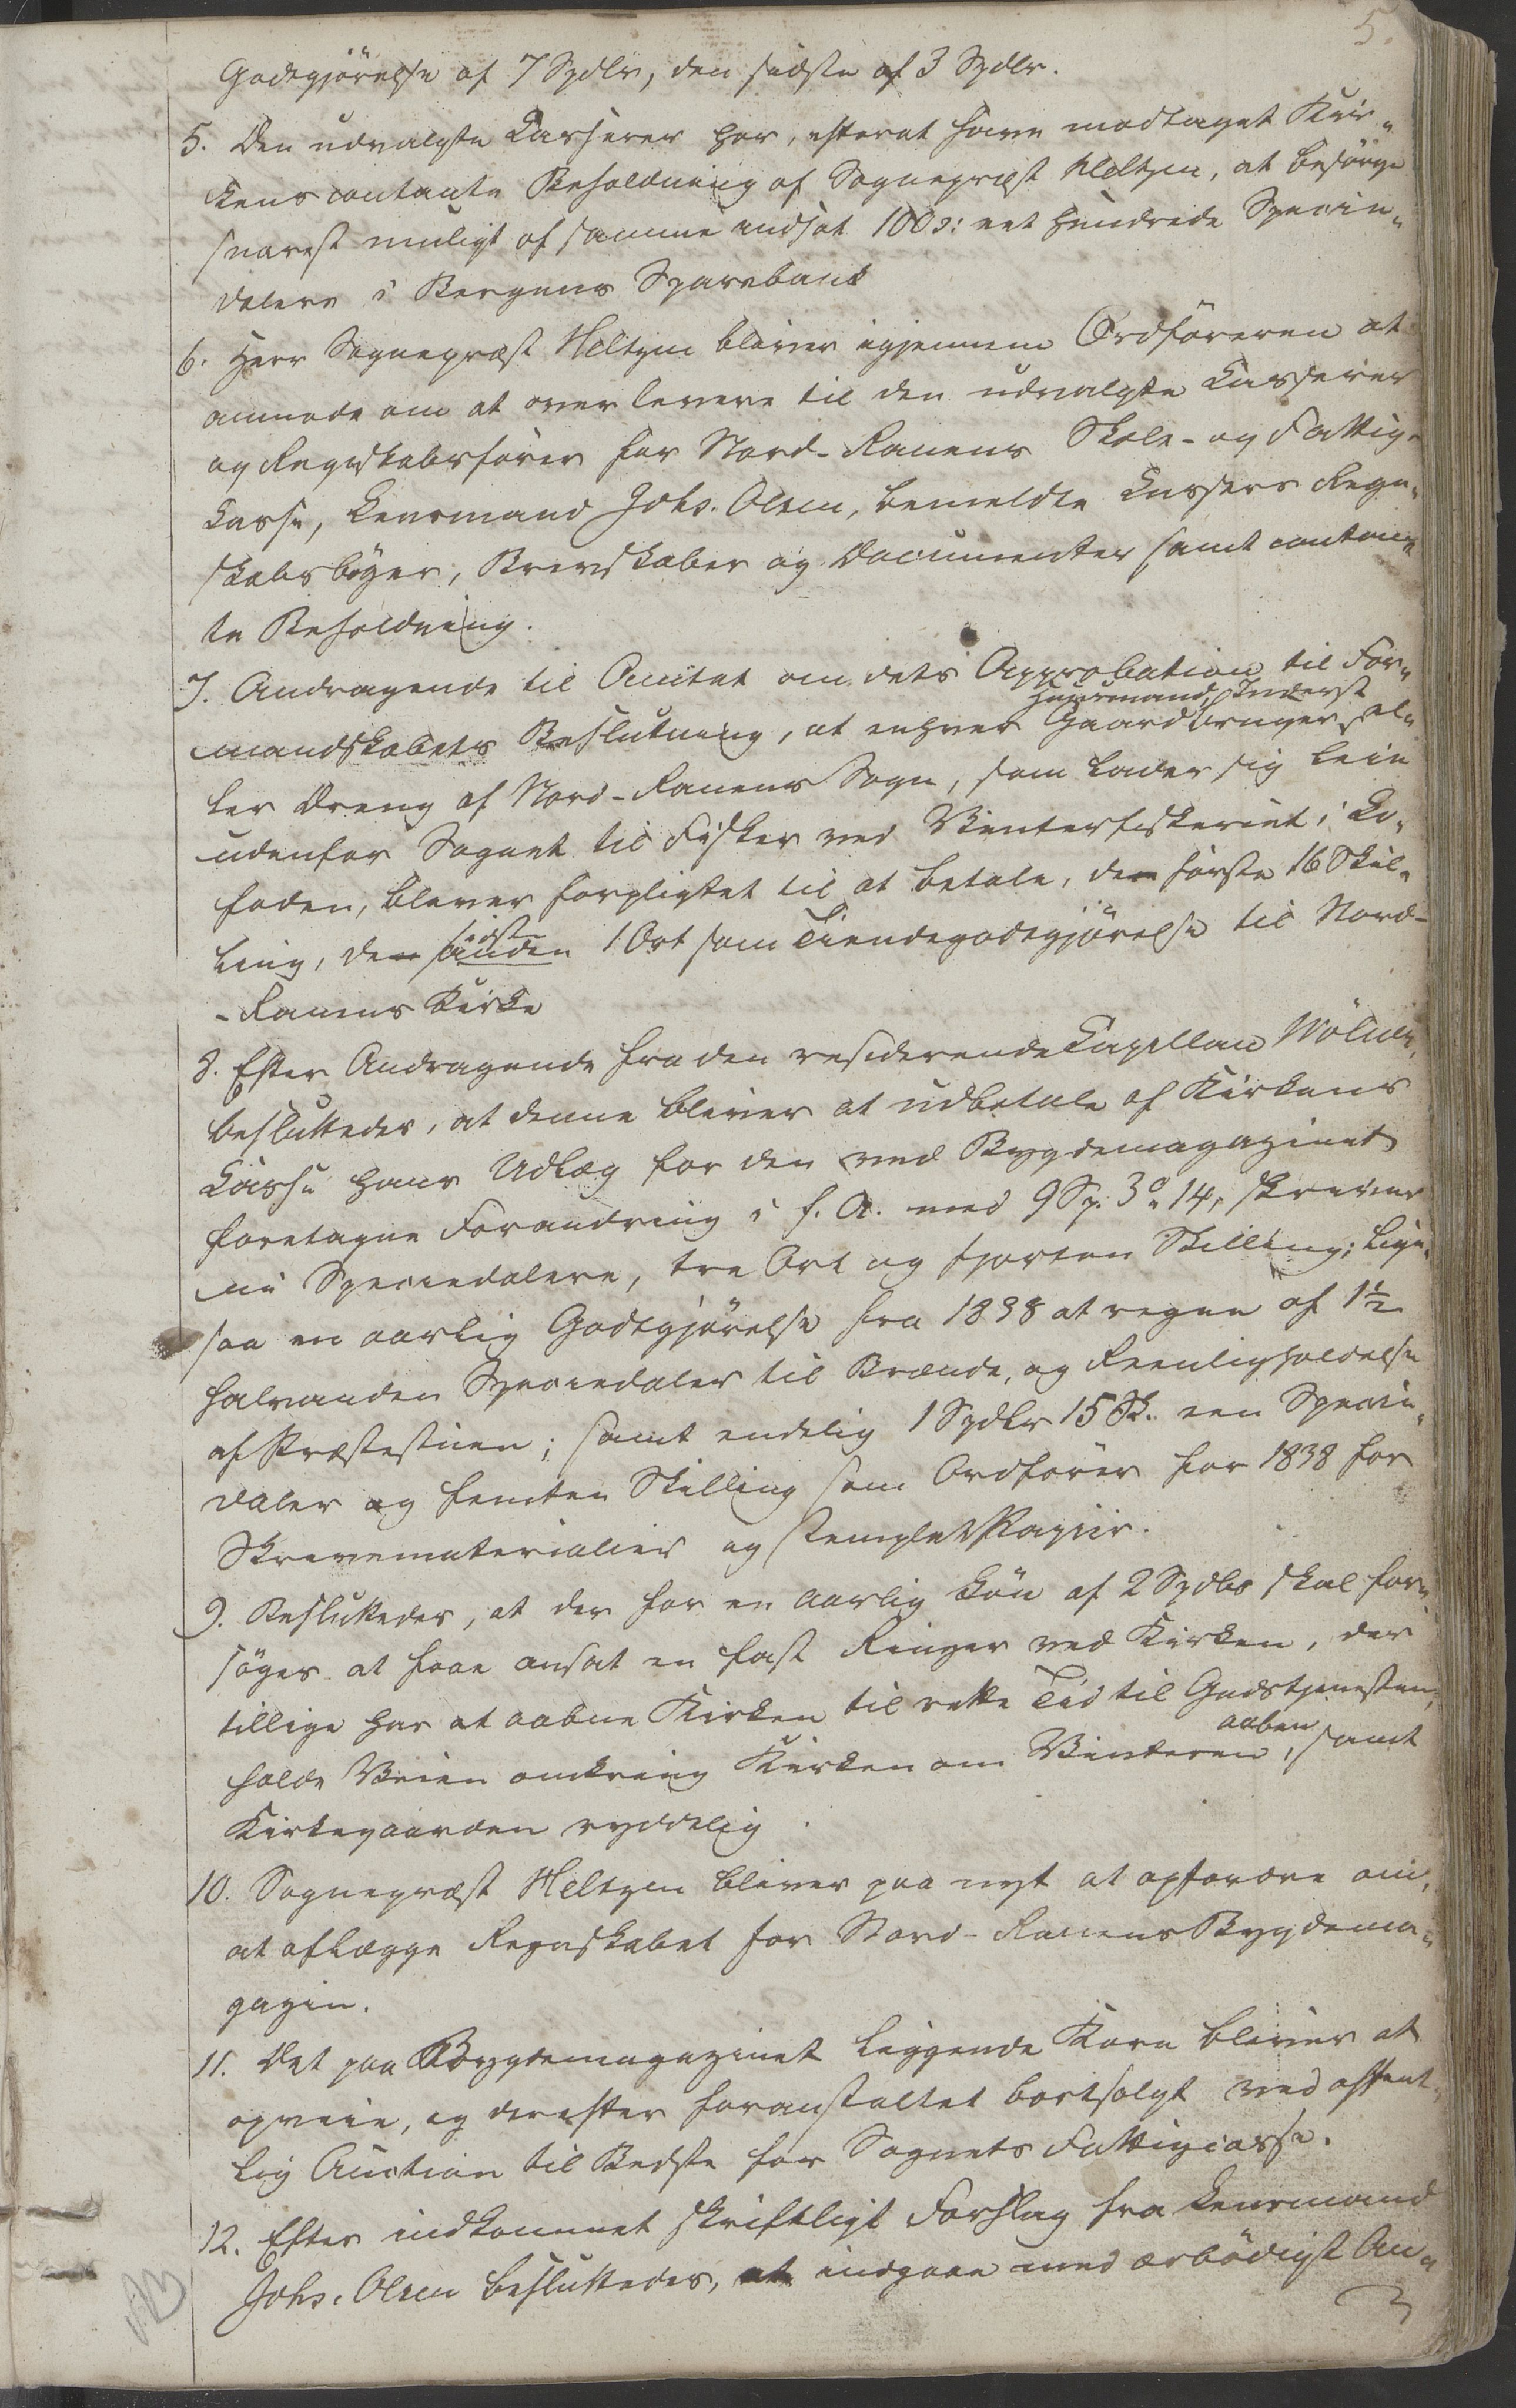 5.
Godtgjörelse af 7 Spdlr, den sidste af 3 Spdlr.
5. Den udvalgte Casserer har, efterat have modtaget Kir„
kens contante Beholdning af Sognepræst Heltzen, at besörge
snarest muligt af samme indsat 100 ɔ: eet hundrede Specie„
dalere i Bergens Sparebank
6. Herr Sognepræst Heltzen bliver igjennem Ordföreren at
anmode om at overlevere til den udvalgte Casserer
og Regnskabsförer for Nord-Ranens Skole- og Fattig„
Casse, Lensmand Johs. Olsen, bemeldte Cassers Regn„
skabsböger, Brevskaber og Documenter samt contan„
te Beholdning.
7. Andragende til Amtet om dets Approbation til For„
mandskabets Beslutning, at enhver Gaardbruger, Huusmand, Inderst el„
ler Dreng af Nord-Ranens Sogn, som lader sig leie
udenfor Sognet til Fisker ved Vinterfiskeriet i Lo„
foden, bliver forpligtet til at betale, den förste 16 Skil„
ling, den sidste anden 1 Ort som Tiendegodtgjörelse til Nord-
-Ranens Kirke
8. Efter Andragende fra den residerende Capellan
besluttedes, at denne bliver at udbetale af Kirkens
Casse hans Udlæg for den ved Bygdemagazinet
foretagne Forandring i f. A. med 9 Sp. 3 o„ 14, skriver
ni Speciedalere, tre Ort og fjorten Skilling; lige„
saa en aarlig Godtgjörelse fra 1838 at regne af 1½
halvanden Speciedaler til Brænde, og Reenligholdelse
af Præstestuen; samt endelig 1 Spdlr 15 Sk. een Specie„
daler og femten Skilling som Ordförer for 1838 for
Skrivematerialier og stemplet Papiir.
9. Besluttedes, at der for en aarlig Lön af 2 Spdlr skal for„
söges at faae ansat en fast Ringer ved Kirken, der
tillige har at aabne Kirken til rette Tid til Gudstjenesten,
holde Veien omkring Kirken om Vinteren aaben, samt
Kirkegaarden ryddelig.
10. Sognepræst Heltzen bliver paa nyt at opfordre om,
at aflægge Regnskabet for Nord-Ranens Bygdema„
gazin.
11. Det paa Bygdemagazinet liggende Korn bliver at
opveie, og derefter foranstaltet bortsolgt ved offent„
lig Auction til Bedste for Sognets Fattigcasse.
12. Efter indkommet skriftligt Forslag fra Lensmand
Johs. Olsen besluttedes, at indgaae med ærbödigst An„